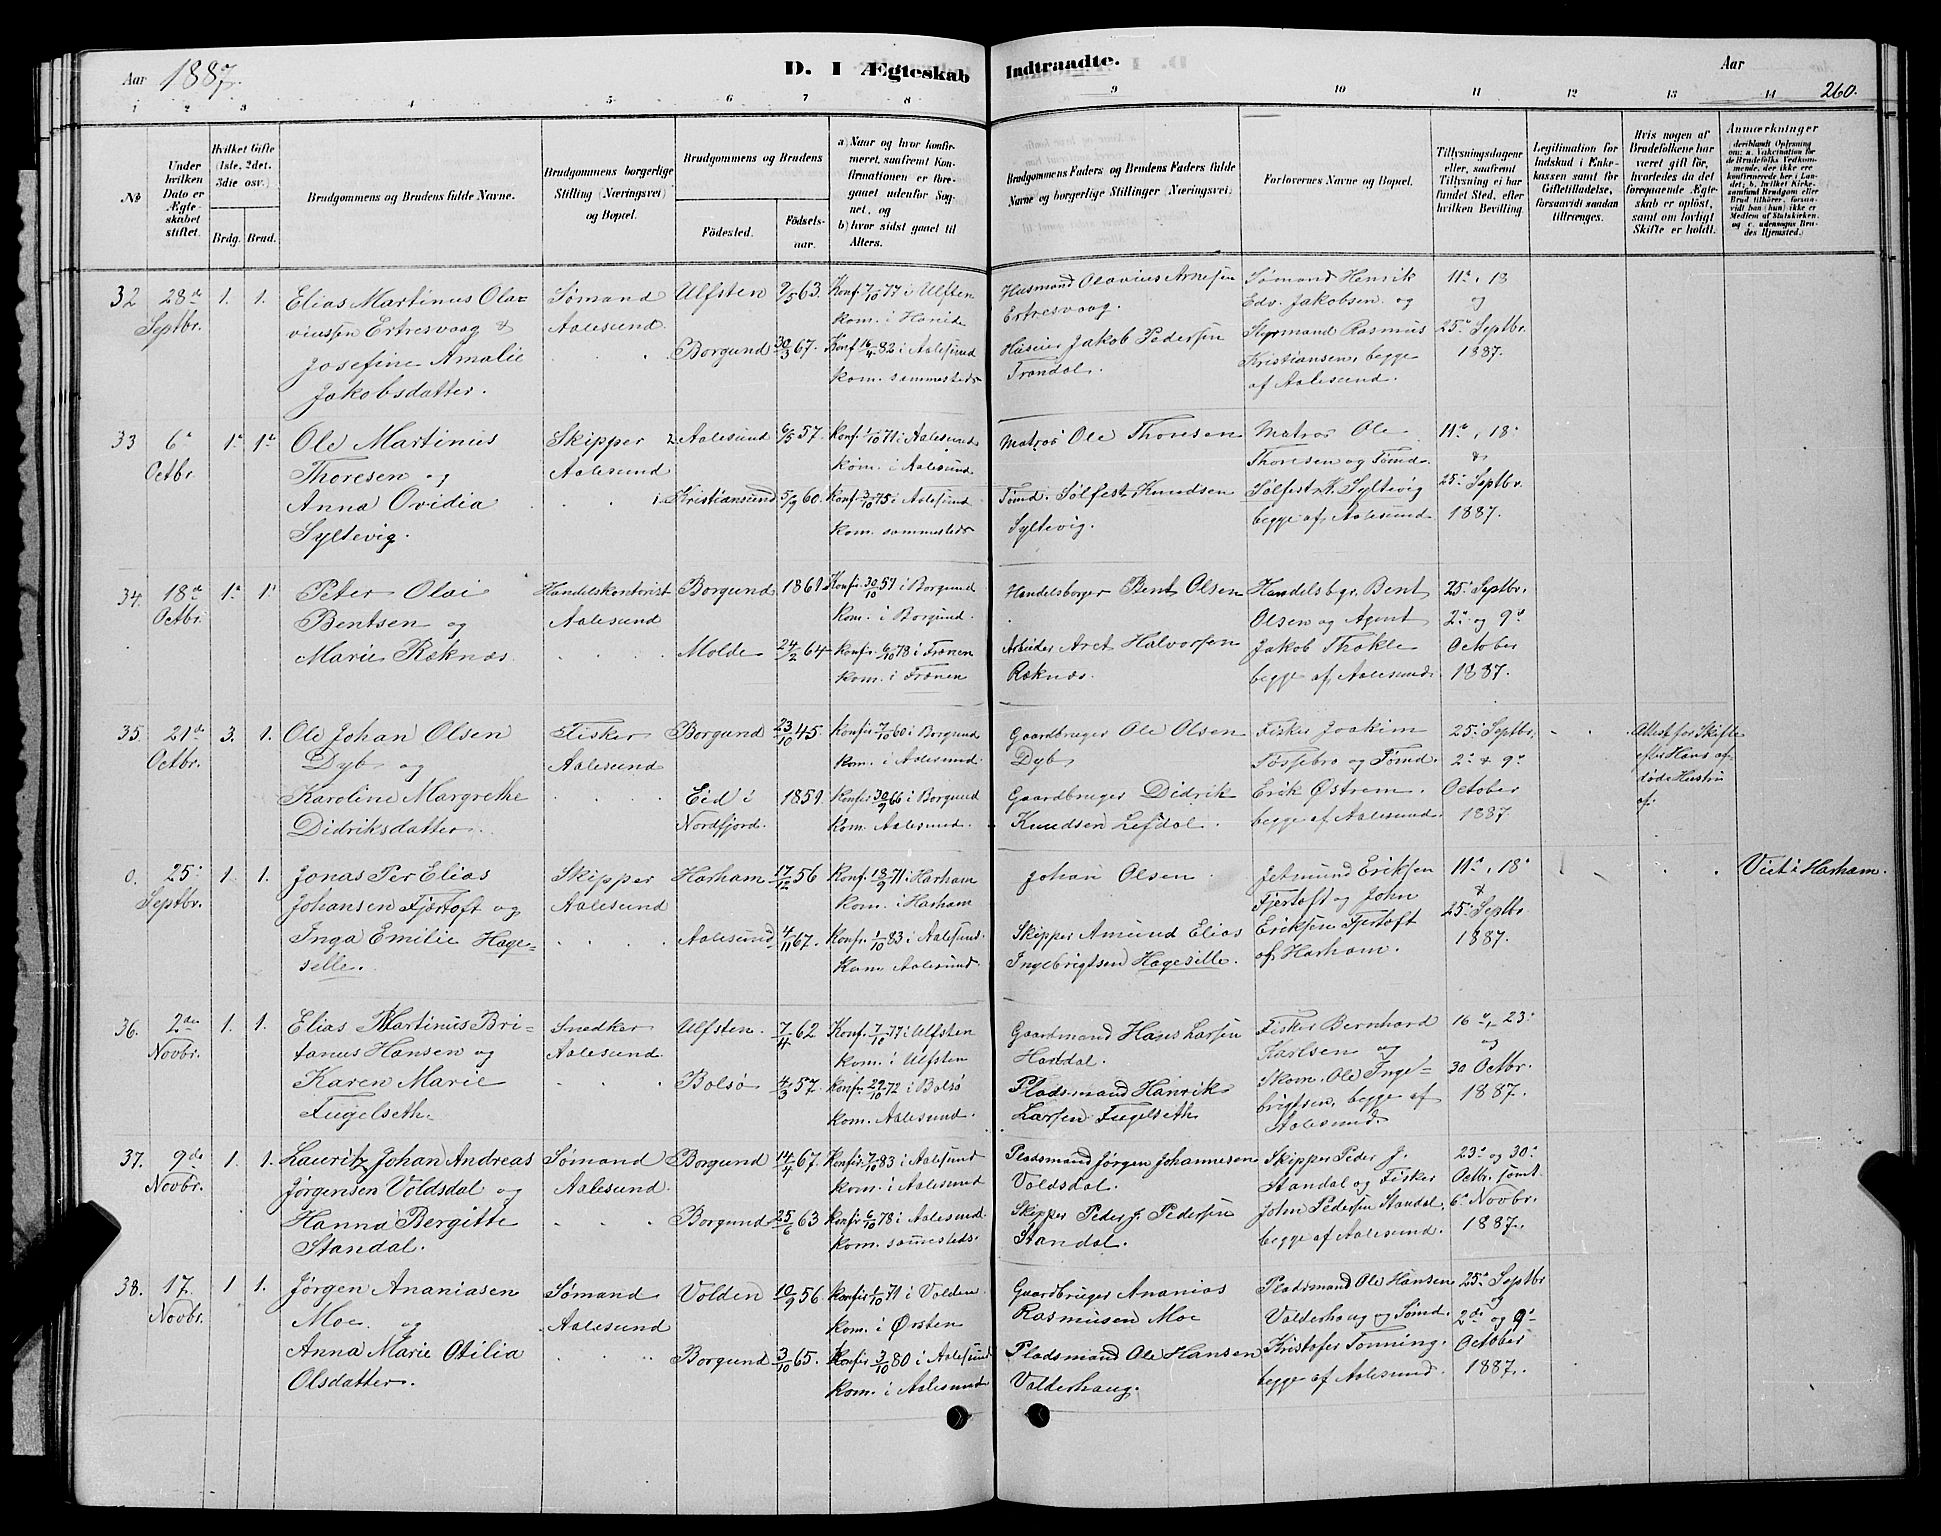 Aar 1887.
D. I Ægteskab Indtraadte.
Aar
260.
1 2 3 4 5 6 7 8 9 10 11 12 13 14
No
Under hvilken Dato er Ægteskabet stiftet.
Hvilket Gifte (1ste, 2det, 3die osv.)
Brdg. Brud.
Brudgommens og Brudens fulde Navne.
Brudgommens borgerlige Stilling (Næringsvei) og Bopæl.
Brudgommens og Brudens
Fødested. Fødselsaar.
a) Naar og hvor konfirmeret, saafremt Konfirmationen er foregaaet udenfor Sognet, og
b) hvor sidst gaaet til Alters.
Brudgommens Faders og Brudens Faders fulde Navne og borgerlige Stillinger (Næringsvei)
Forlovernes Navne og Bopæl.
Tillysningsdagene eller, saafremt Tillysning ei har fundet Sted, efter hvilken Bevilling.
Legitimation for Indskud i Enkekassen samt for Giftetilladelse, forsaavidt saadan tiltrænges.
Hvis nogen af Brudefolkene har været gift før, hvorledes da det foregaaende Ægteskab er opløst, samt om lovligt Skifte er holdt.
Anmærkninger (deriblandt Oplysning om: a. Vakcination for de Brudefolks Vedkommende, der ikke er konfirmerede her i Landet; b. hvilket Kirkesamfund Brudgom eller Brud tilhører, forsaavidt han (hun) ikke er Medlem af Statskirken, og c. udensogns Brudes Hjemsted.)
32 28de Septbr. 1. 1.
Elias Martinus Olaviussen Ertresvaag &
Josefine Amalie Jakobsdatter.
Sømand Aalesund
Ulfsten 9/5 63. Konf. 7/10 77 i Ulfsten kom. i
Borgund 30/3 67. Konf 16/4 82 i Aalesund kom. sammesteds
Husmand Olavius Arnesen Ertresvaag.
Huseier Jakob Pedersen Trandal.
Sømand Henrik Edv. Jakobsen og Styrmand Rasmus Kristiansen, begge af Aalesund.
11te, 18 og 25de Septbr. 1887.
33 6te Octbr. 1te 1te
Ole Martinus Thoresen og
Anna Ovidia Syltevig.
Skipper Aalesund
Aalesund 6/5 57. Konf. 1/10 71 i Aalesund kom. i Aalesund
Kristiansund 5/9 60. Konf. 3/10 75 i Aalesund kom. sammesteds
Matros Ole Thoresen
Tømd. Sølfest Knudsen Syltevig.
Matros Ole Thoresen og Tømd. Sølfest K. Syltevig begge af Aalesund
11te, 18de & 25de Septbr. 1887.
34. 18de Octbr. 1te 1.
Peter Olai Bentsen og
Marie Røknæs.
Handelskontorist Aalesund
Borgund 1861. Konfr. 30/10 59 i Borgund kom. i Borgund.
Molde 24/2 64 Konfr. 6/10 78 i Frænen kom. i Frænen
Handelsborger Bent Olsen
Arbeider Aret Halvorsen Røknæs.
Handelsbgr. Bent Olsen og Agent Jakob Thokle begge af Aalesund
25de Septbr. 2de og 9de October 1887.
35. 21de Octbr. 3. 1.
Ole Johan Olsen Dyb og
Karoline Margrethe Didriksdatter.
Fisker Aalesund
Borgund 23/10 45. Konfir 7/10 60 i Borgund kom. i Aalesund.
Eid i Nordfjord. 1851. Konfir 30/9 66 i Borgund kom. Aalesund.
Gaardbruger Ole Olsen Dyb
Gaardbruger Didrik Knudsen Lefdal.
Fisker Joakim Fossebro og Tømd. Erik Østrem. begge af Aalesund
25de Septbr. 2de & 9de October 1887
Attest for Skifte efter Hans afdøde Hustru af.
0. 25de Septbr. 1. 1.
Jonas Per Elias Johansen Fjærtoft og
Inga Emilie Hageselle.
Skipper Aalesund
Harham 17/12 56 Konf. 18/9 71 i Harham kom. i Harham
Aalesund 4/11 67. Konfr. 1/10 83 i Aalesund. Kom Aalesund.
Johan Olsen
Skipper Amund Elias Ingebrigtsen Hagesille.
Jetmund Eriksen Fjertoft og John Eriksen Fjertoft af Harham.
11te, 18de & 25de Septbr 1887.
Viet i Harham.
36. 2den Novbr. 1. 1.
Elias Martinus Britanus Hansen og
Karen Marie Fugelseth.
Snedker Aalesund
Ulfsten. 7/4 62 Konf. 7/10 77 i Ulfsten kom. i Ulfsten
Bolsø 4/3 57. Konfir. 29/10 72 i Bolsø kom. Aalesund.
Gaardmand Hans Larsen Haddal.
Pladsmand Hanrik Larsen Fugelseth
Fisker Bernhard Karlsen og Skom. Ole Ingebrigtsen, begge af Aalesund.
16de, 23de og 30 Octbr. 1887.
37. 9de Novbr. 1. 1.
Lauritz Johan Andreas Jørgensen Voldsdal og
Hanna Bergitte Standal.
Sømand Aalesund.
Borgund 14/4 67. Konfir. 7/10 83 i Aalesund kom. i Aalesund
Borgund 25/6 63 Konfir 6/10 78 i Aalesund. kom. sammesteds.
Pladsmand Jørgen Johannesen Voldsdal.
Skipper Peder J. Pedersen Standal.
Skipper Peder J. Standal og Fisker John Pedersen Standal, begge af Aalesund.
23de og 30de Octbr. samt 6te Novbr. 1887.
38. 17. Novbr. 1 1.
Jørgen Ananiasen Moe og
Anna Marie Otilia Olsdatter.
Sømand Aalesund
Volden 10/9 56. Konfir 1/10 71 i Volden kom. i Ørsten
Borgund 3/10 65. Konfir 3/10 80 i Aalesund kom. i Aalesund
Gaardbruger Ananias Rasmusen Moe
Pladsmand Ole Hansen Valderhaug.
Pladsmand Ole Hansen Valderhaug og Sømd. Kristofer Tonning. begge af Aalesund.
25de Septbr og 2de og 9de October 1887.